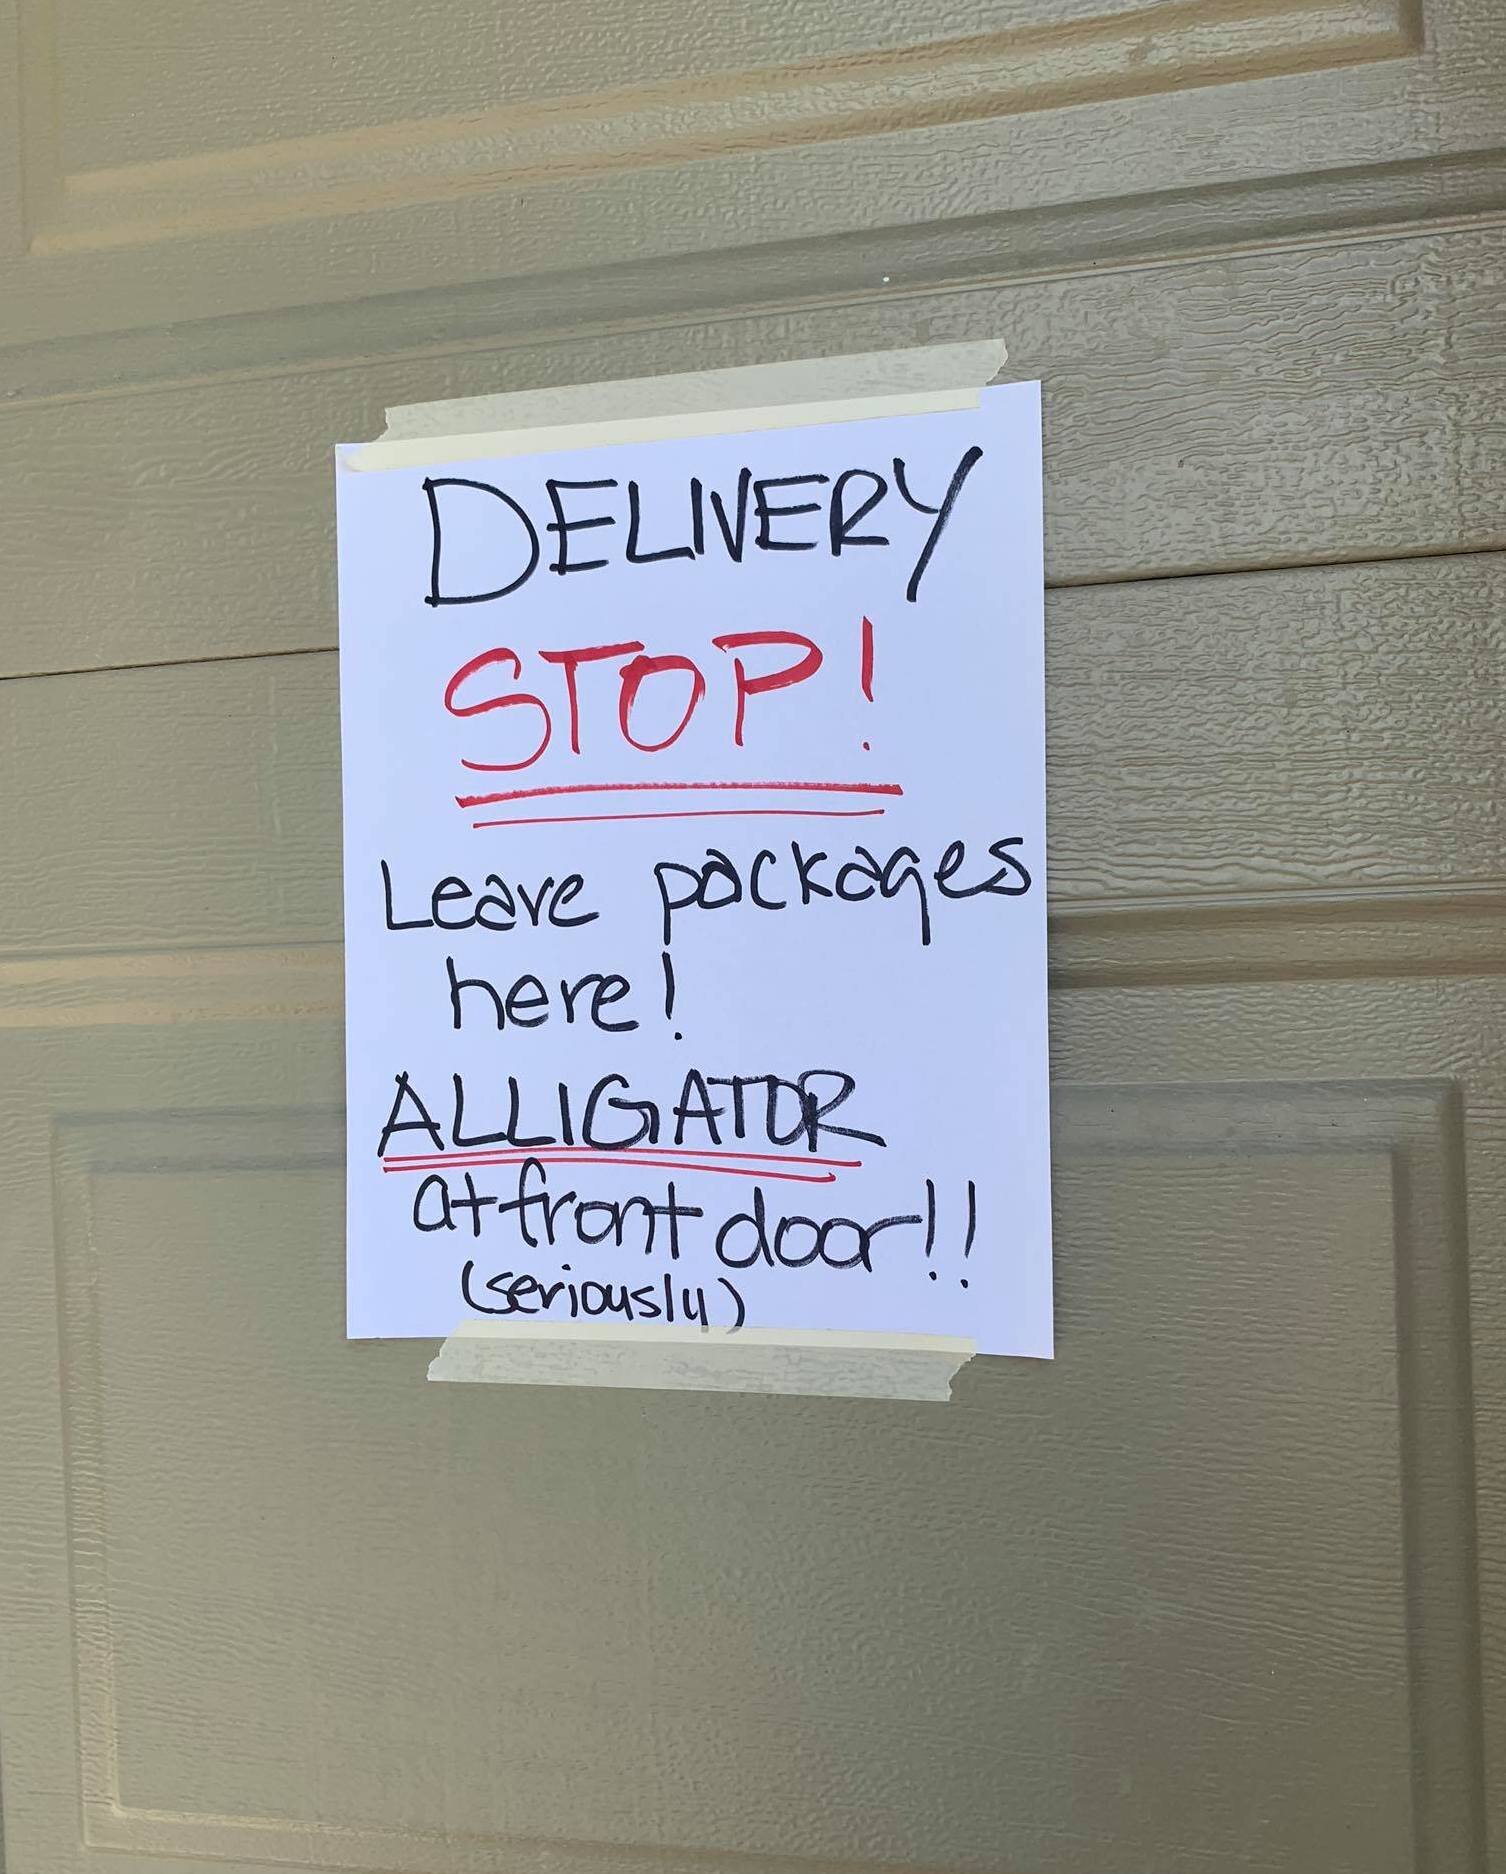 DELIVERY
STOP!
Leave packages
here!
ALLIGATOR
at front door!!
(seriously)